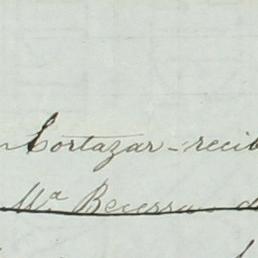 Cortazar - recib
Mª Becerra d